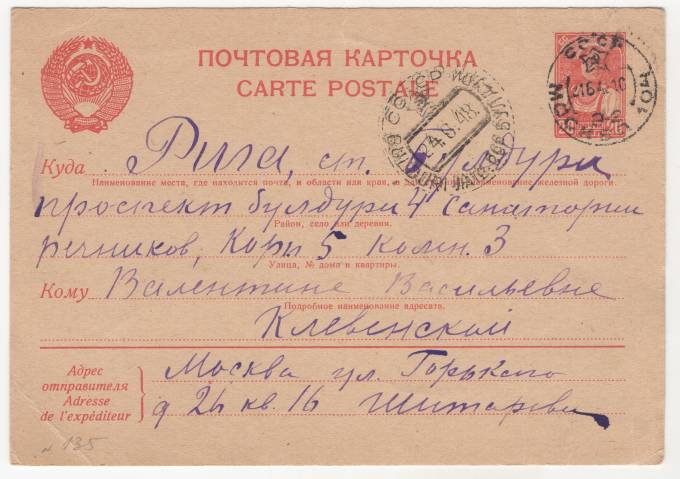 ПОЧТОВАЯ КАРТОЧКА
CARTE POSTALE
СССР
24.6.48
Куда Рига, ст. Булдури
Наименование места, где находится почта, и области или края, а для станций наименование железной дороги.
проспект булдури 4 санатории
Район, село или деревня.
речников, Корп 5 комн. 3
Улица, № дома и квартиры.
Кому Валентине Васильевне
Подробное наименование адресата.
Клевенской
Адрес отправителя
Adresse de l'expéditeur
Москва ул. Горького
д 26 кв. 16
135